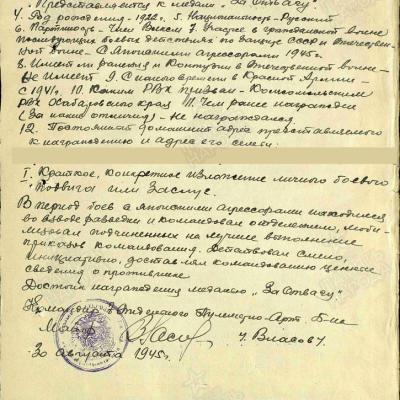 Представляется к медали "За Отвагу"
4. Год рождения - 1922 г. 5. Национальность - Русский
6. Партийность - Член ВЛКСМ 7. Участие в гражданской войне
последующих боевых действиях по защите СССР и отечествен-
ной войне - С Японскими агрессорами 1945 г.
8. Имеет ли ранения и контузии в отечественной войне -
Не имеет 9. С какого времени в Красной Армии -
С 1941 г. 10. Каким РВК призван - Комсомольским
РВК Хабаровского края 11. Чем ранее награжден
(За какие отличия) - не награждался
12. Постоянный домашний адрес представляемого
к награждению и адрес его семьи
I. Краткое, конкретное изложение личного боевого
подвига или заслуг.
В период боев с японскими агрессорами находился
во взводе разведки и командовал отделением, моби-
лизовал подчиненных на лучшее выполнение
приказов командования. Действовал смело,
инициативно, доставлял командованию ценные
сведения о противнике
Достоин награждения медалью "За Отвагу"
Командир Пулеметно-Арт. б-на
Майор / Власов /
30 августа 1945 г.